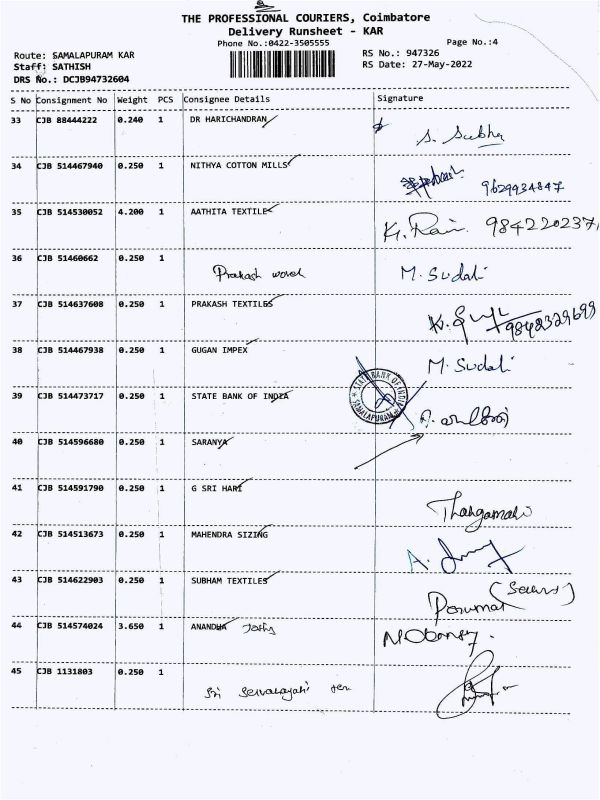 THE PROFESSIONAL COURIERS, Coimbatore
Delivery Runsheet - KAR
Phone No.:0422-3505555
Page No.:4
Route: SAMALAPURAM KAR
RS No.: 947326
Staff: SATHISH
RS Date: 27-May-2022
DRS No.: DCJB94732604
S No Consignment No Weight PCS Consignee Details Signature
33 CJB 88444222 0.240 1 DR HARICHANDRAN S. Subha
34 CJB 514467940 0.250 1 NITHYA COTTON MILLS 9629934847
35 CJB 514530052 4.200 1 AATHITA TEXTILE K. 984220237
36 CJB 51460662 0.250 1 Prakash M. Sudali
37 CJB 514637608 0.250 1 PRAKASH TEXTILES K. 9842329699
38 CJB 514467938 0.250 1 GUGAN IMPEX M. Sudali
39 CJB 514473717 0.250 1 STATE BANK OF INDIA STATE BANK OF INDIA SAMALAPURAM
40 CJB 514596680 0.250 1 SARANYA
41 CJB 514591790 0.250 1 G SRI HARI Thangamani
42 CJB 514513673 0.250 1 MAHENDRA SIZING A.
43 CJB 514622903 0.250 1 SUBHAM TEXTILES Perumal
44 CJB 514574024 3.650 1 ANANDHA
45 CJB 1131803 0.250 1 Sri